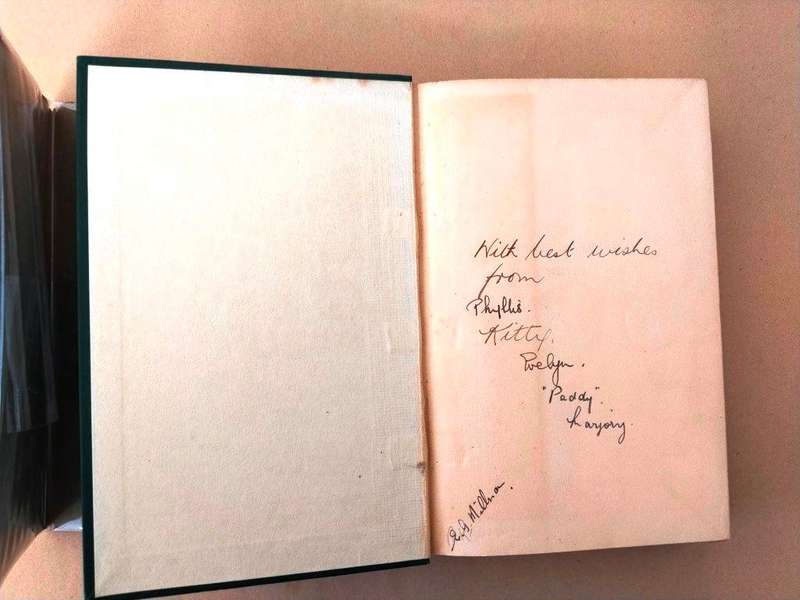 With best wishes
from
Phyllis.
Kitty.
Evelyn.
"Paddy".
Marjory.